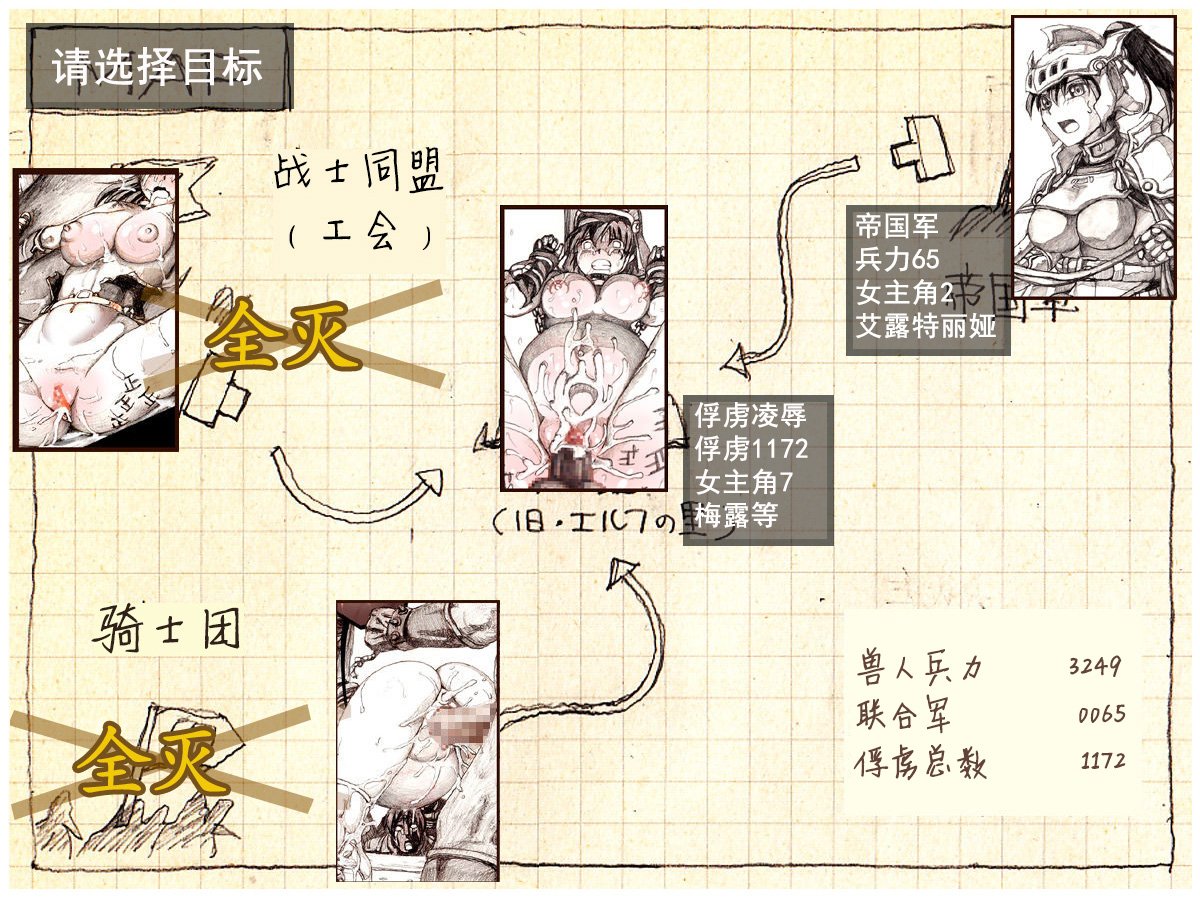 请选择目标
战士同盟
（工会）
全灭
帝国军
兵力65
女主角2
艾露特丽娅
帝国军
俘虏凌辱
俘虏1172
女主角7
梅露等
(旧・エルフの里)
骑士团
全灭
兽人兵力 3249
联合军 0065
俘虏总数 1172